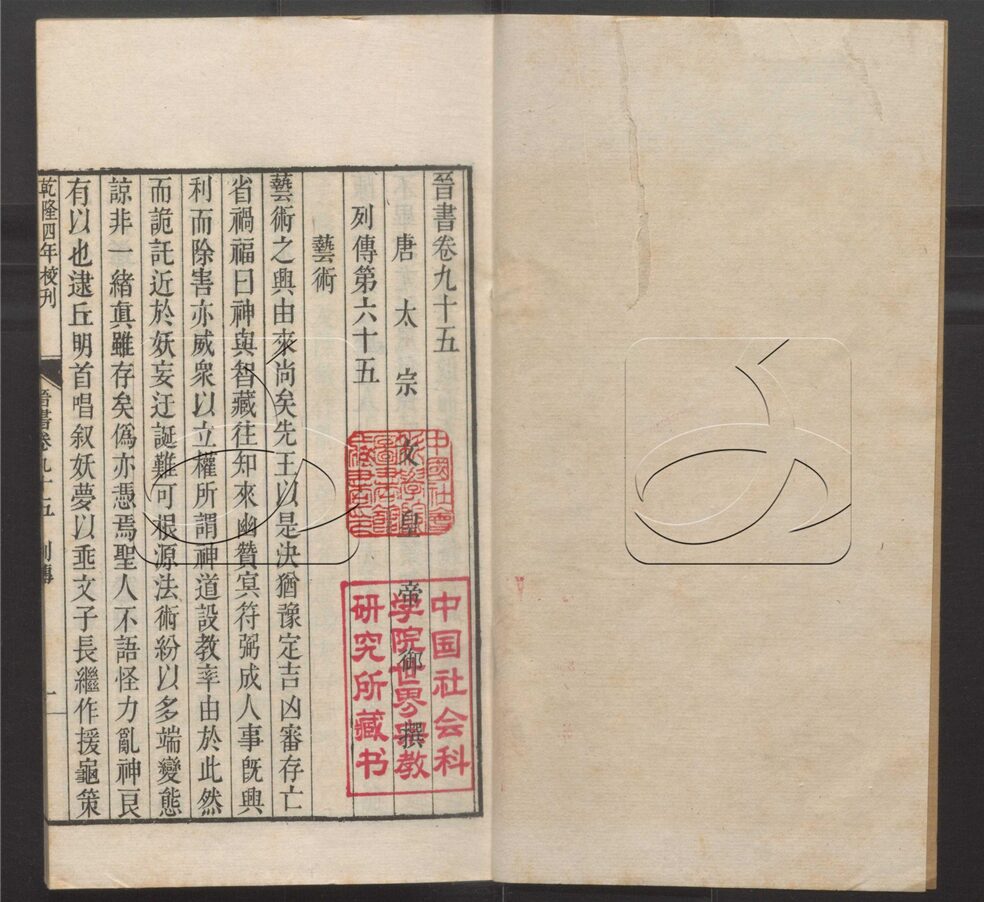 晉書卷九十五
唐太宗文皇帝御撰
列傳第六十五
藝術
藝術之興由來尚矣先王以是決猶豫定吉凶審存亡
省禍福曰神與智藏往知來幽贊冥符弼成人事既興
利而除害亦威眾以立權所謂神道設教率由於此然
而詭託近於妖妄迂誕難可根源法術紛以多端變態
諒非一緒真雖存矣偽亦憑焉聖人不語怪力亂神良
有以也逮丘明首唱叙妖夢以垂文子長繼作援龜策
乾隆四年校刊
晉書卷九十五 列傳
一
中國社會
中国社会科
学院世界宗教
研究所藏书